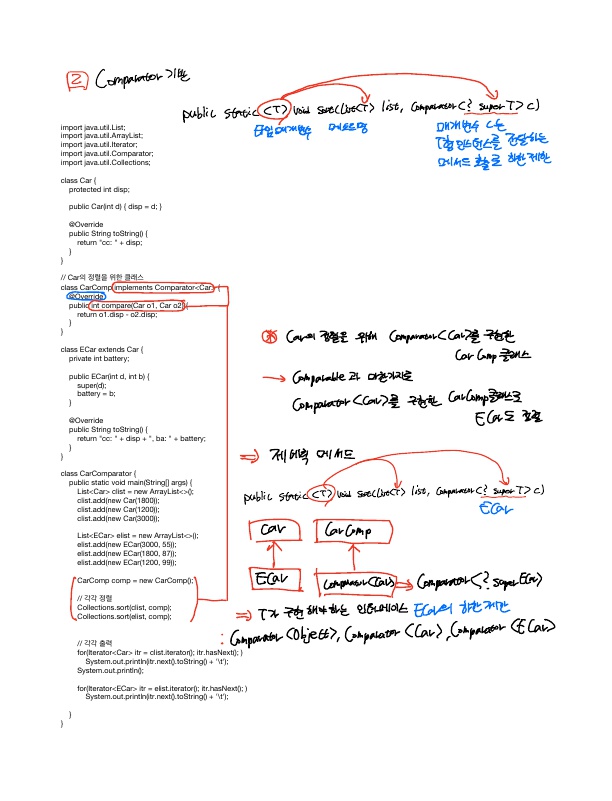 2 Comparator 기반
public static <T> void sort(List<T> list, Comparator<? super T> c)
타입매개변수 메소드명
매개변수 c는
T형 인스턴스를 전달하는
메서드 호출로 하한 제한
import java.util.List;
import java.util.ArrayList;
import java.util.Iterator;
import java.util.Comparator;
import java.util.Collections;
class Car {
protected int disp;
public Car(int d) { disp = d; }
@Override
public String toString() {
return "cc: " + disp;
}
}
// Car의 정렬을 위한 클래스
class CarComp implements Comparator<Car> {
@Override
public int compare(Car o1, Car o2) {
return o1.disp - o2.disp;
}
}
Car의 정렬을 위해 Comparator<Car>를 구현한
Car Comp 클래스
→ Comparable과 마찬가지로
Comparator<Car>를 구현한 CarComp클래스로
ECar도
class ECar extends Car {
private int battery;
public ECar(int d, int b) {
super(d);
battery = b;
}
@Override
public String toString() {
return "cc: " + disp + ", ba: " + battery;
}
}
⇒ 제네릭 메서드
public static <T> void sort(List<T> list, Comparator<? super T> c)
ECar
class CarComparator {
public static void main(String[] args) {
List<Car> clist = new ArrayList<>();
clist.add(new Car(1800));
clist.add(new Car(1200));
clist.add(new Car(3000));
List<ECar> elist = new ArrayList<>();
elist.add(new ECar(3000, 55));
elist.add(new ECar(1800, 87));
elist.add(new ECar(1200, 99));
Car CarComp
ECar Comparator<Car> → Comparator<? super ECar>
CarComp comp = new CarComp();
// 각각 정렬
Collections.sort(clist, comp);
Collections.sort(elist, comp);
⇒ T가 구현해야하는 인터페이스 ECar의 하한제한
: Comparator<Object>, Comparator<Car>, Comparator<ECar>
// 각각 출력
for(Iterator<Car> itr = clist.iterator(); itr.hasNext(); )
System.out.println(itr.next().toString() + '\t');
System.out.println();
for(Iterator<ECar> itr = elist.iterator(); itr.hasNext(); )
System.out.println(itr.next().toString() + '\t');
}
}